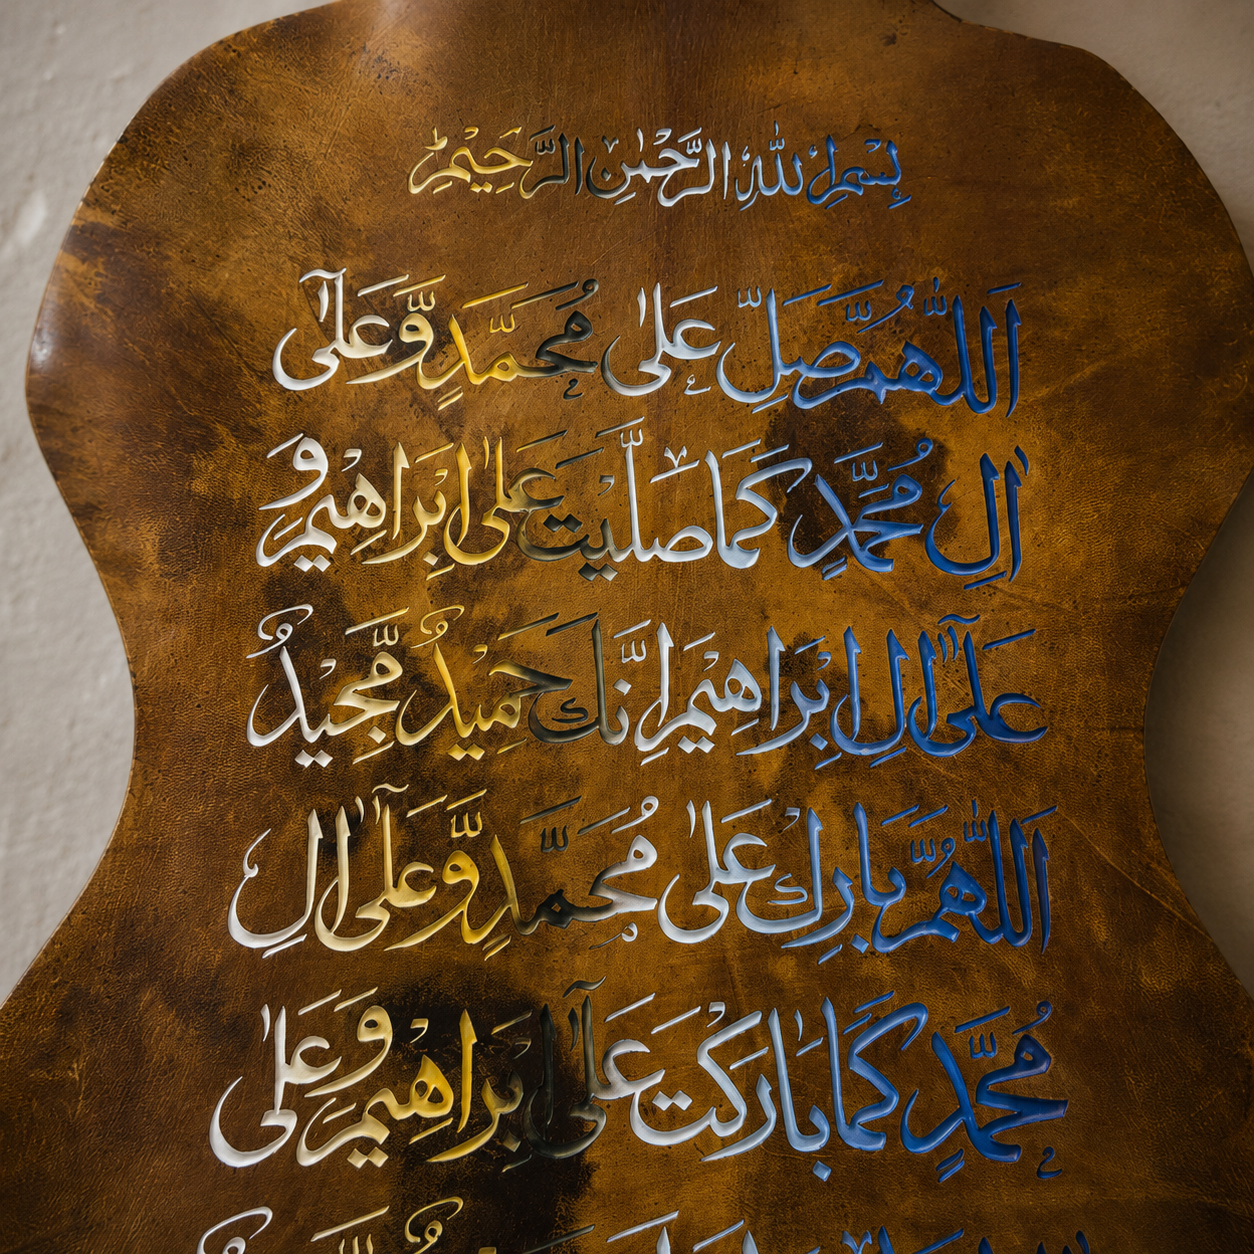 بِسْمِ اللهِ الرَّحْمٰنِ الرَّحِيْمِ
اَللّٰهُمَّ صَلِّ عَلٰى مُحَمَّدٍ وَّعَلٰٓى
اٰلِ مُحَمَّدٍ كَمَا صَلَّيْتَ عَلٰٓى اِبْرَاهِيْمَ وَ
عَلٰٓى اٰلِ اِبْرَاهِيْمَ اِنَّكَ حَمِيْدٌ مَّجِيْدٌ
اَللّٰهُمَّ بَارِكْ عَلٰى مُحَمَّدٍ وَّعَلٰٓى اٰلِ
مُحَمَّدٍ كَمَا بَارَكْتَ عَلٰٓى اِبْرَاهِيْمَ وَعَلٰٓى